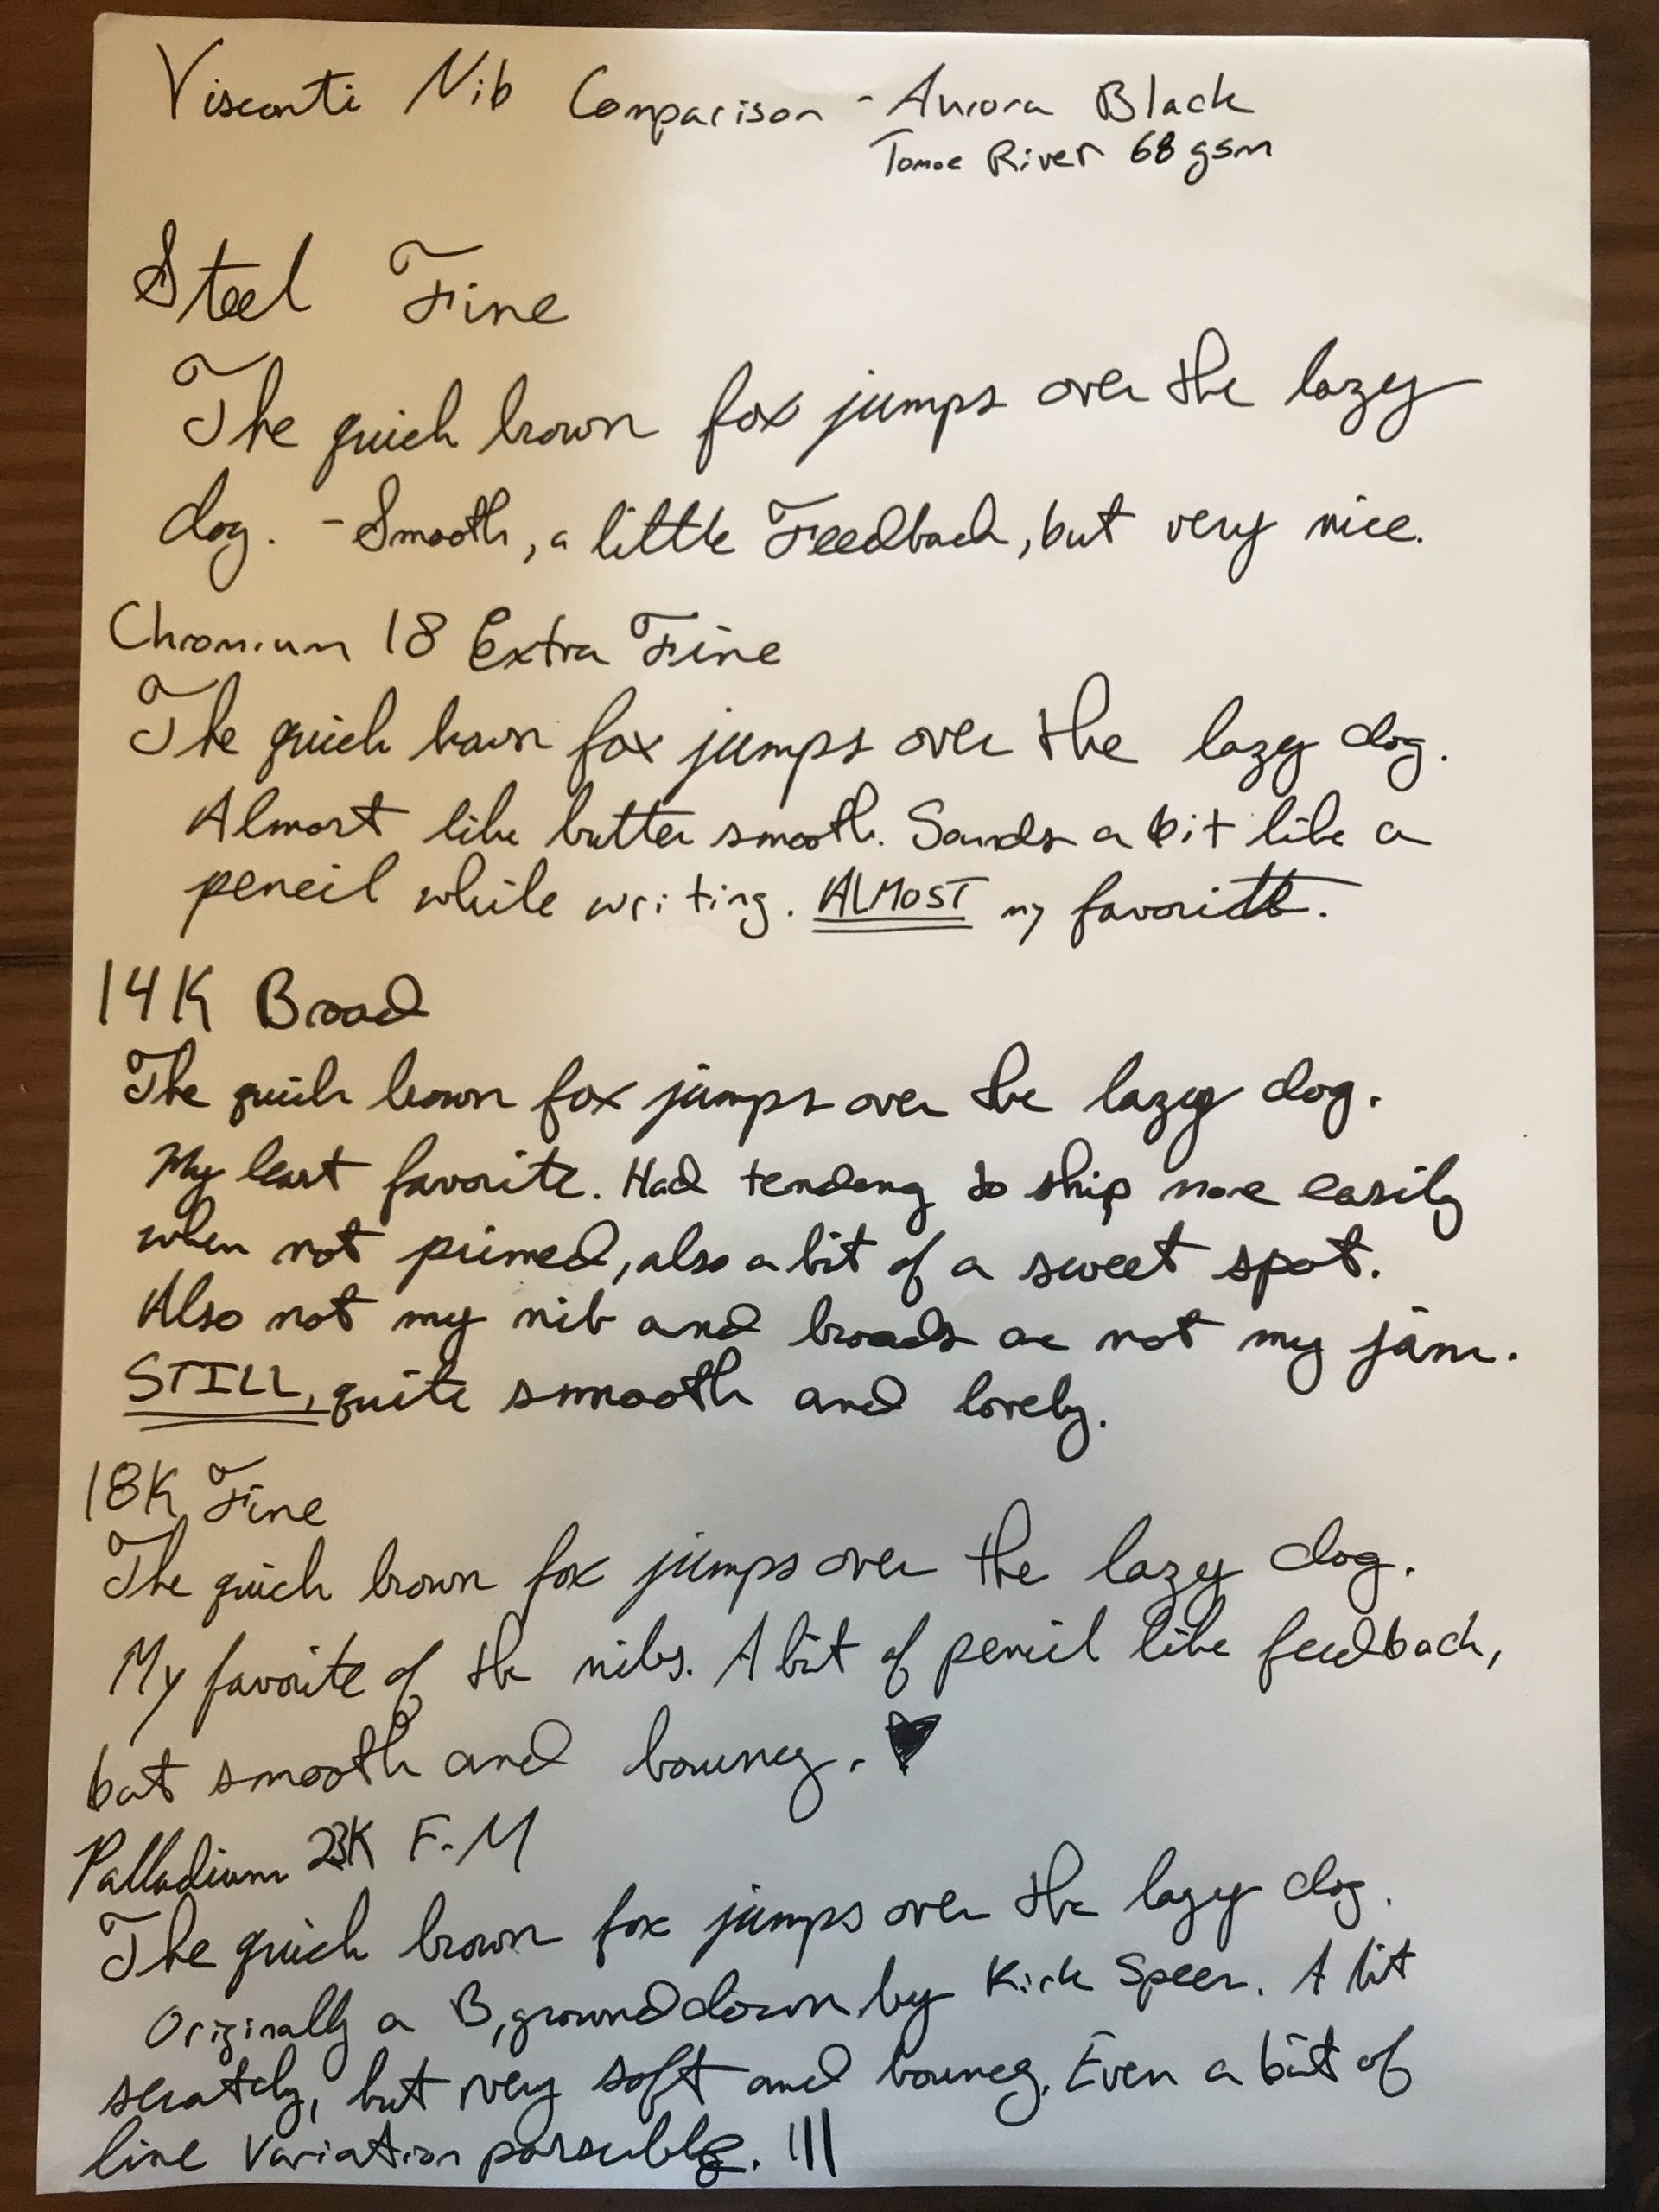 Visconti Nib Comparison - Aurora Black
Tomoe River 68 gsm
Steel Fine
The quick brown fox jumps over the lazy
dog. - Smooth, a little Feedback, but very nice.
Chromium 18 Extra Fine
The quick brown fox jumps over the lazy dog.
Almost like butter smooth. Sounds a bit like a
pencil while writing. ALMOST my favorite.
14K Broad
The quick brown fox jumps over the lazy dog.
My least favorite. Had tendency to skip more easily
when not primed, also a bit of a sweet spot.
Also not my nib and broads are not my jam.
STILL, quite smooth and lovely.
18K Fine
The quick brown fox jumps over the lazy dog.
My favorite of the nibs. A bit of pencil like feedback,
but smooth and bouncy. ♥
Palladium 23K F-M
The quick brown fox jumps over the lazy dog.
Originally a B, ground down by Kirk Speer. A bit
scratchy, but very soft and bouncy. Even a bit of
line variation possible. |||